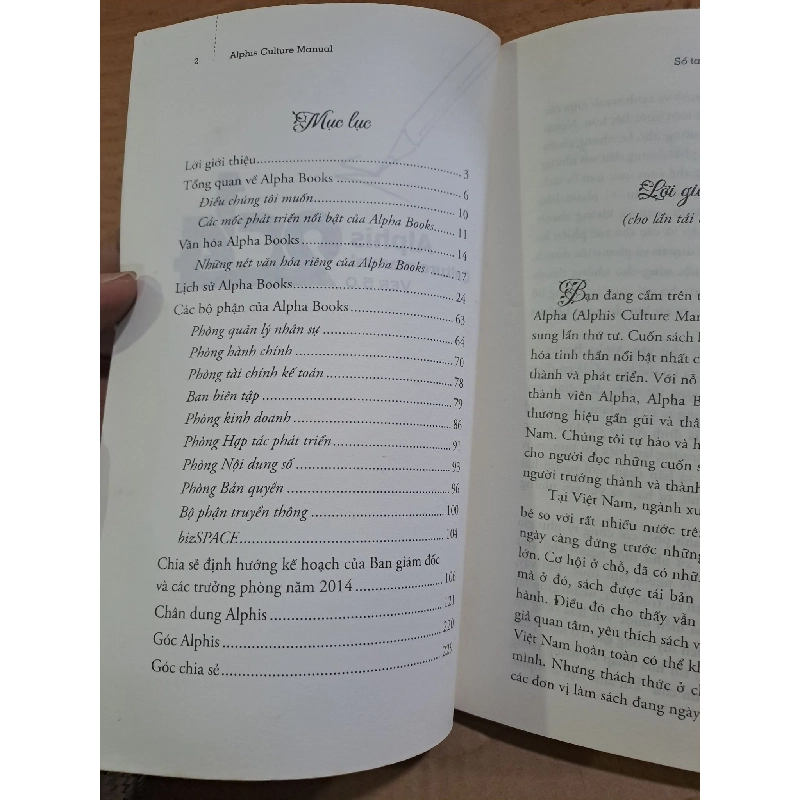 2 Alphis Culture Manual
Mục lục
Lời giới thiệu 3
Tổng quan về Alpha Books 6
Điều chúng tôi muốn 10
Các mốc phát triển nổi bật của Alpha Books 11
Văn hóa Alpha Books 14
Những nét văn hóa riêng của Alpha Books 17
Lịch sử Alpha Books 24
Các bộ phận của Alpha Books 63
Phòng quản lý nhân sự 64
Phòng hành chính 70
Phòng tài chính kế toán 78
Ban biên tập 79
Phòng kinh doanh 86
Phòng Hợp tác phát triển 91
Phòng Nội dung số 93
Phòng Bản quyền 96
Bộ phận truyền thông 100
bizSPACE 104
Chia sẻ định hướng kế hoạch của Ban giám đốc
và các trưởng phòng năm 2014 106
Chân dung Alphis 121
Góc Alphis 220
Góc chia sẻ 225
Sổ ta
Lời gi
(cho lần tái
Bạn đang cầm trên t
Alpha (Alphis Culture Ma
sung lần thứ tư. Cuốn sách l
hóa tinh thần nổi bật nhất c
thành và phát triển. Với nỗ
thành viên Alpha, Alpha B
thương hiệu gần gũi và thâ
Nam. Chúng tôi tự hào và h
cho người đọc những cuốn s
người trưởng thành và thành
Tại Việt Nam, ngành xu
bé so với rất nhiều nước trê
ngày càng đứng trước những
lớn. Cơ hội ở chỗ, đã có nhữ
mà ở đó, sách được tái bản
hành. Điều đó cho thấy vẫn
giả quan tâm, yêu thích sách v
Việt Nam hoàn toàn có thể k
mình. Nhưng thách thức ở c
các đơn vị làm sách đang ngày